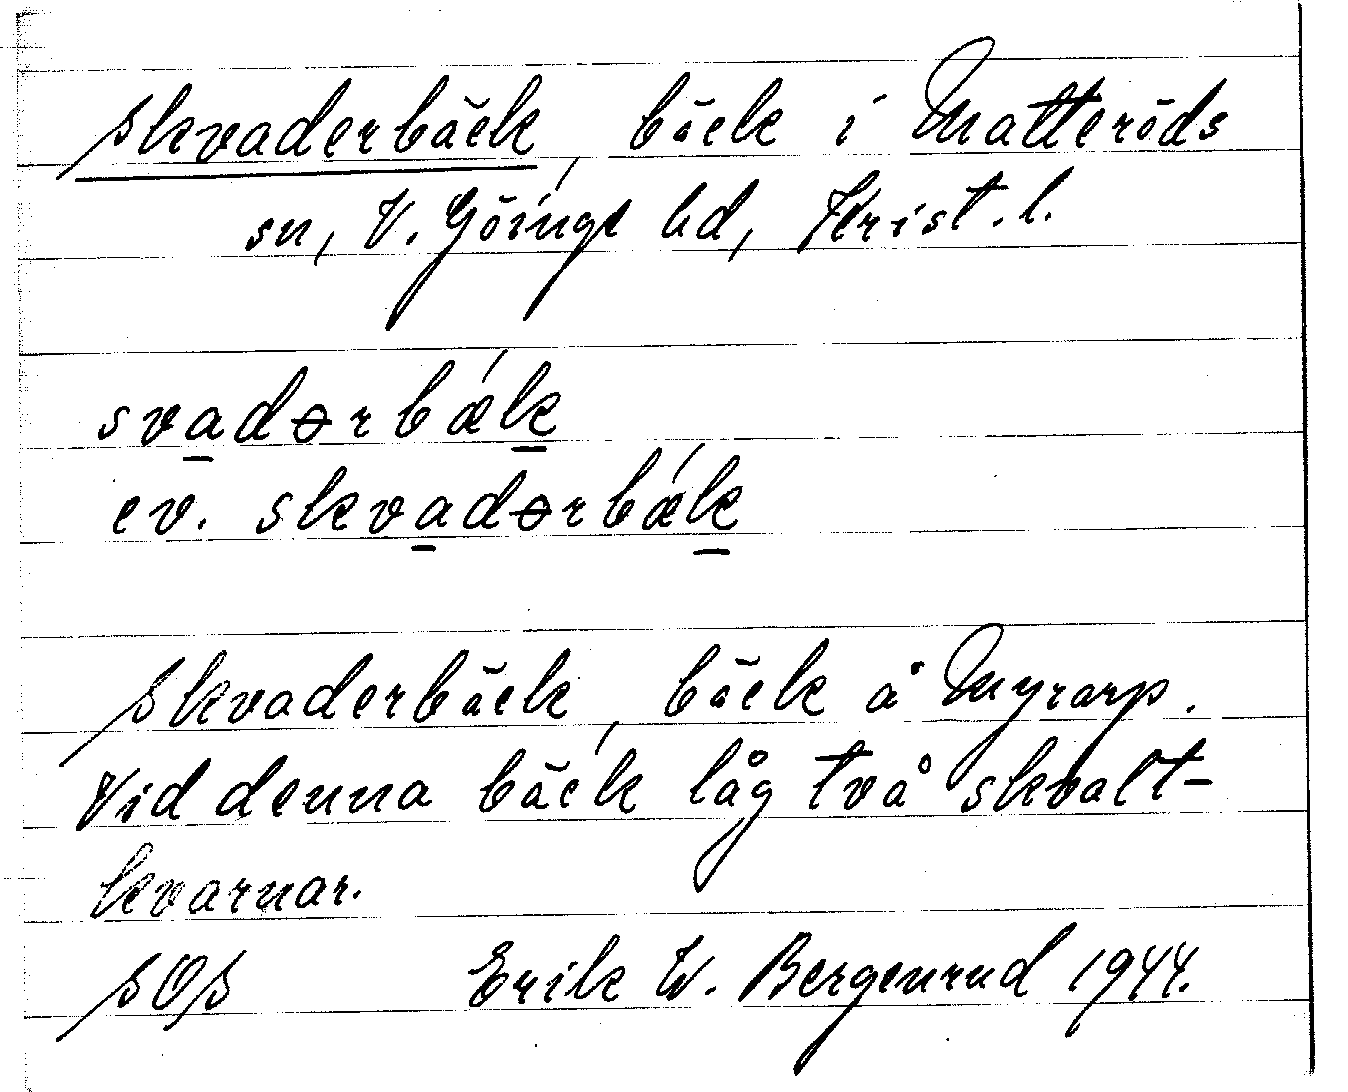 Skvaderbäck, bäck i Matteröds
sn, V. Göinge hd, Krist. l.
svadərbǽk
ev. skvadərbǽk
Skvaderbäck, bäck å Myrarp.
Vid denna bäck låg två skvalt-
kvarnar.
SOS Erik W. Bergenrud 1944.